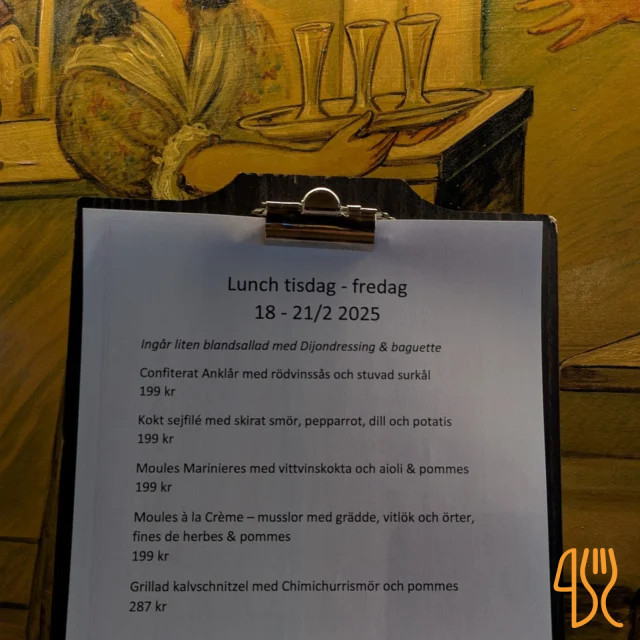 Lunch tisdag - fredag
18 - 21/2 2025
Ingår liten blandsallad med Dijondressing & baguette
Confiterat Anklår med rödvinssås och stuvad surkål
199 kr
Kokt sejfilé med skirat smör, pepparrot, dill och potatis
199 kr
Moules Marinieres med vittvinskokta och aioli & pommes
199 kr
Moules à la Crème – musslor med grädde, vitlök och örter,
fines de herbes & pommes
199 kr
Grillad kalvschnitzel med Chimichurrismör och pommes
287 kr